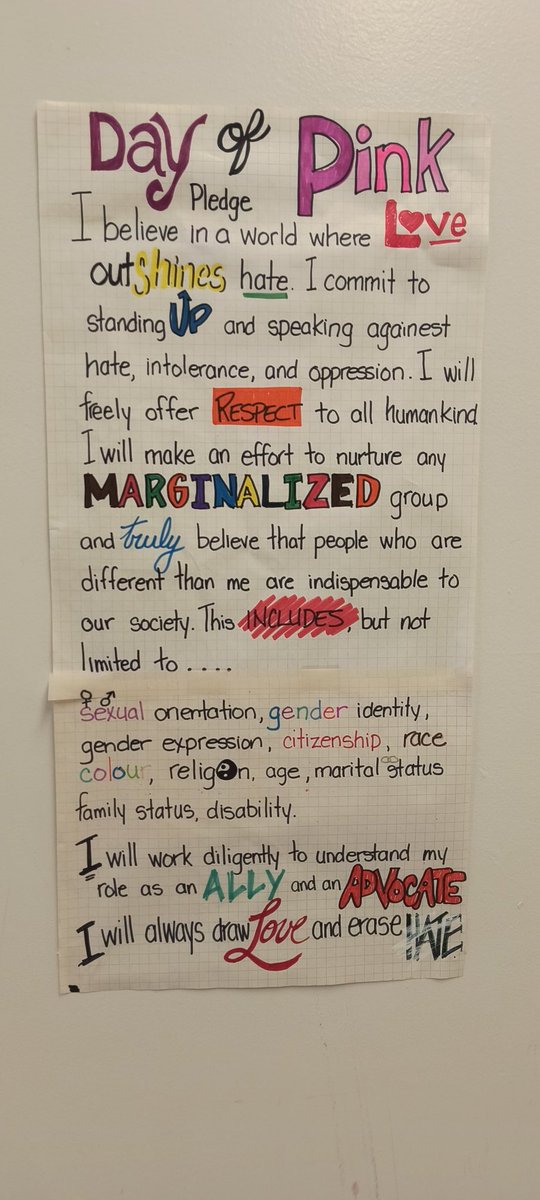 Day of Pink
Pledge
I believe in a world where Love
outshines hate. I commit to
standing UP and speaking againest
hate, intolerance, and oppression. I will
freely offer RESPECT to all humankind
I will make an effort to nurture any
MARGINALIZED group
and truly believe that people who are
different than me are indispensable to
our society. This INCLUDES, but not
limited to ....
sexual orientation, gender identity,
gender expression, citizenship, race
colour, religion, age, marital status
family status, disability.
I will work diligently to understand my
role as an ALLY and an ADVOCATE
I will always draw Love and erase HATE